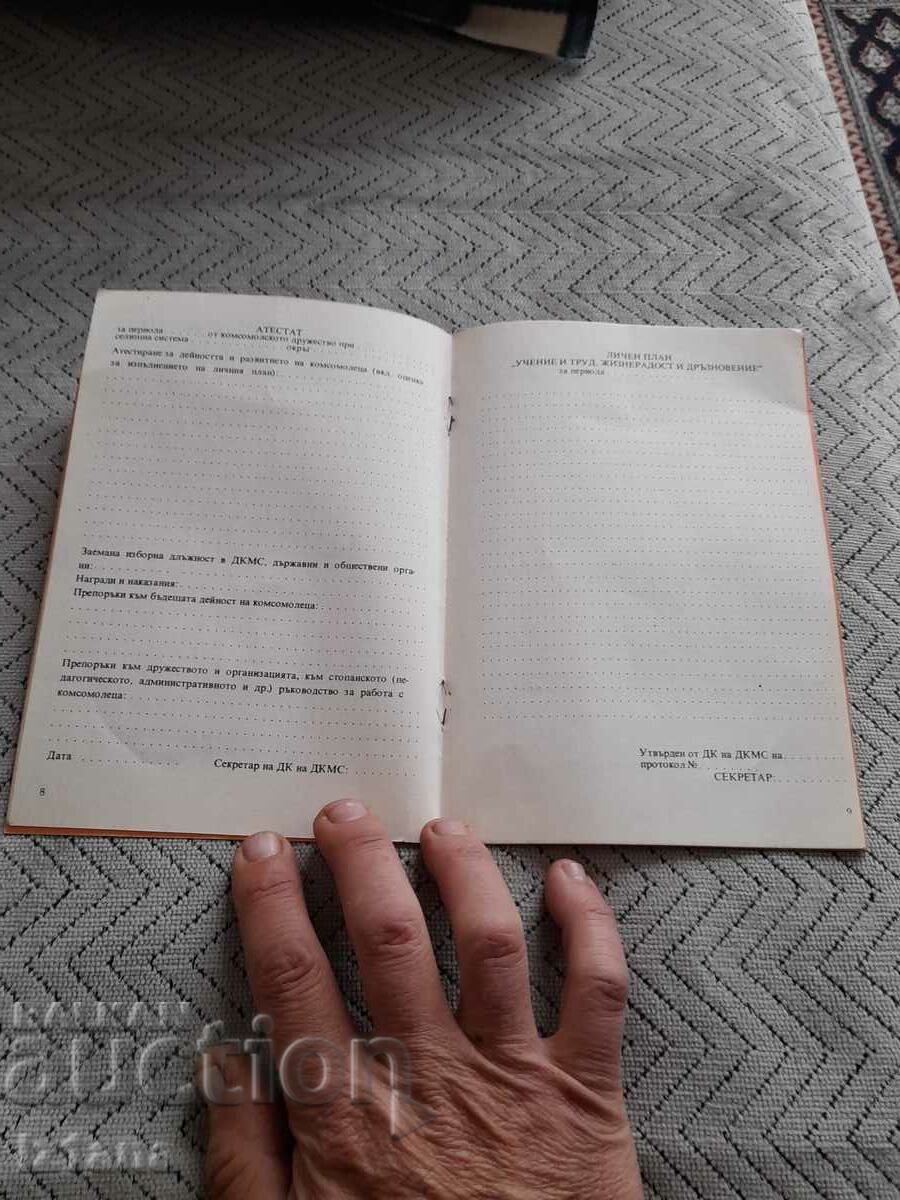 АТЕСТАТ
за периода . . . . . . . от комсомолското дружество при
селищна система . . . . . . . окръг . . . . . . .
Атестиране за дейността и развитието на комсомолеца (вкл. оценка
за изпълнението на личния план):
Заемана изборна длъжност в ДКМС, държавни и обществени орга-
ни:
Награди и наказания:
Препоръки към бъдещата дейност на комсомолеца:
Препоръки към дружеството и организацията, към стопанското (пе-
дагогическото, административното и др.) ръководство за работа с
комсомолеца:
Дата . . . . . . . Секретар на ДК на ДКМС: . . . . . . .
8
ЛИЧЕН ПЛАН
„УЧЕНИЕ И ТРУД, ЖИЗНЕРАДОСТ И ДРЪЗНОВЕНИЕ"
за периода
Утвърден от ДК на ДКМС на . . . . . . .
протокол №
СЕКРЕТАР: . . . . . . .
9
BALKAN
auction
Iziana